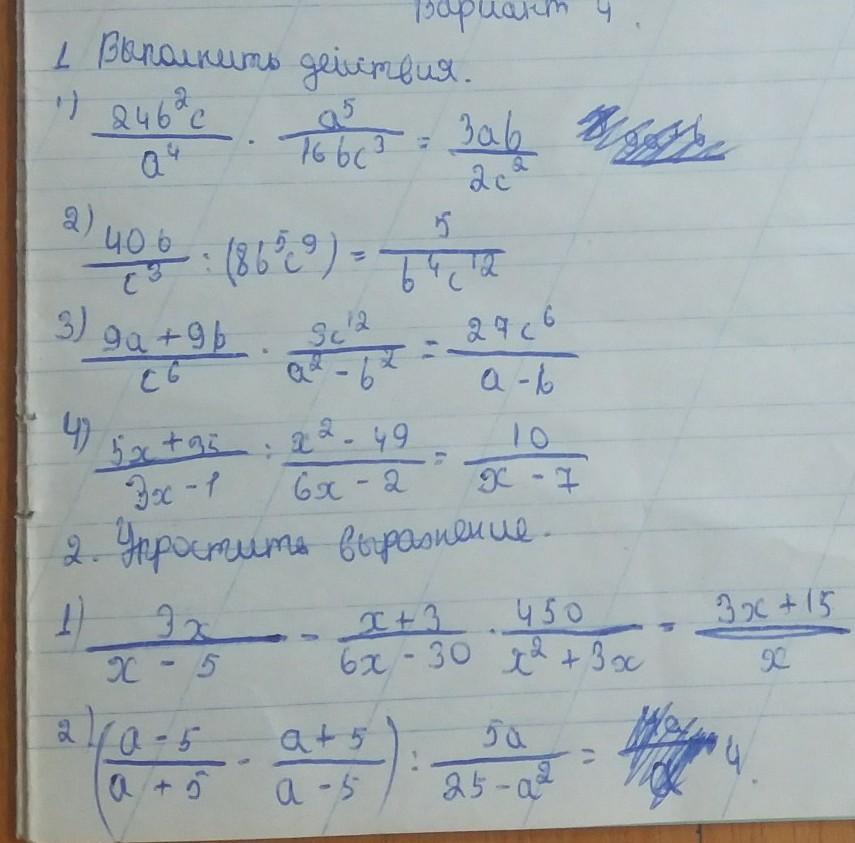 Вариант 4.
1 Выполнить действия.
1) 24b²c/a⁴ · a⁵/16bc³ = 3ab/2c²
2) 40b/c³ : (8b⁵c⁹) = 5/b⁴c¹²
3) 9a+9b/c⁶ · 3c¹²/a²-b² = 27c⁶/a-b
4) 5x+35/3x-1 : x²-49/6x-2 = 10/x-7
2. Упростить выражение.
1) 3x/x-5 - x+3/6x-30 · 450/x²+3x = 3x+15/x
2) (a-5/a+5 - a+5/a-5) : 5a/25-a² = 4.